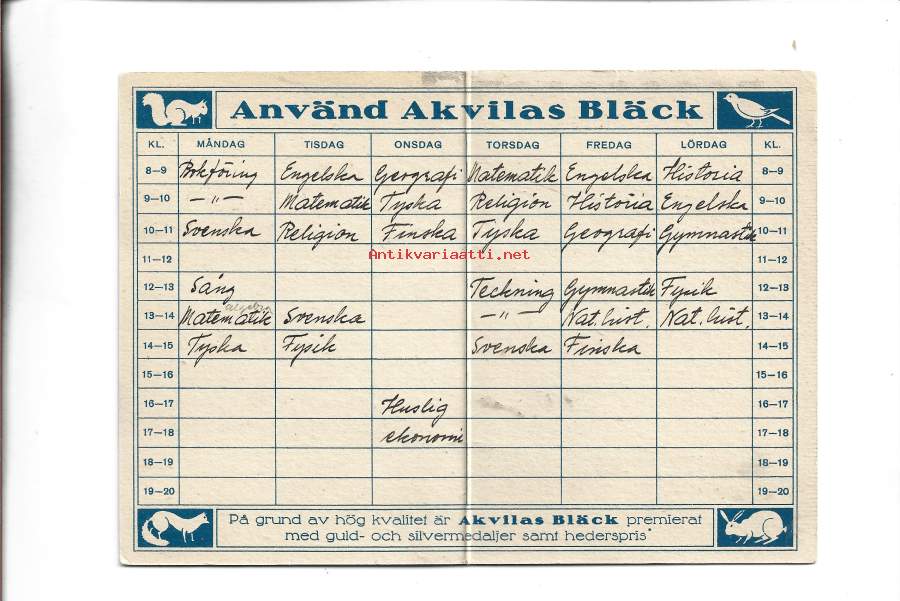 Använd Akvilas Bläck
KL. MÅNDAG TISDAG ONSDAG TORSDAG FREDAG LÖRDAG KL.
8–9 Bokföring Engelska Geografi Matematik Engelska Historia 8–9
9–10 —"— Matematik Tyska Religion Historia Engelska 9–10
10–11 Svenska Religion Finska Tyska Geografi Gymnastik 10–11
Antikvariaatti.net
11–12 11–12
12–13 Sång Teckning Gymnastik Fysik 12–13
algebra
13–14 Matematik Svenska —"— Nat. hist. Nat. hist. 13–14
14–15 Tyska Fysik Svenska Finska 14–15
15–16 15–16
16–17 Huslig 16–17
17–18 ekonomi 17–18
18–19 18–19
19–20 19–20
På grund av hög kvalitet är Akvilas Bläck premierat
med guld- och silvermedaljer samt hederspris